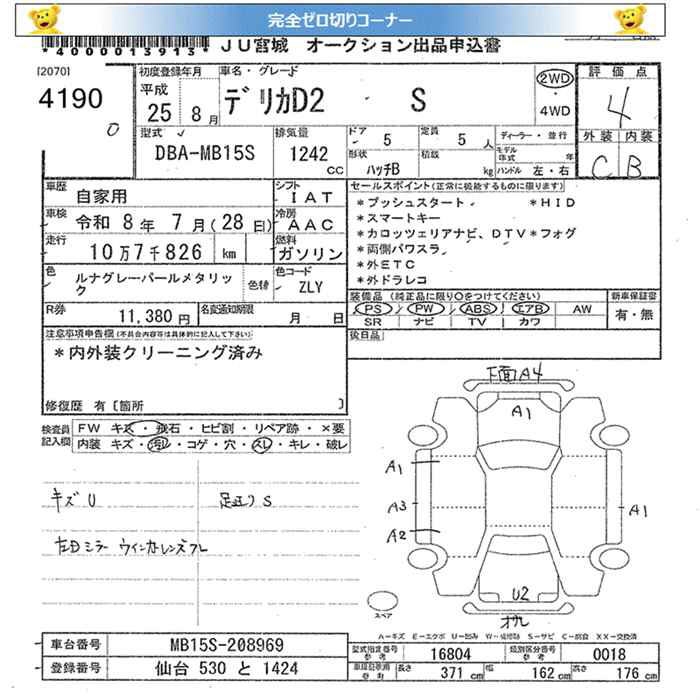 完全ゼロ切りコーナー
*4000013913*
JU宮城 オークション出品申込書
[2070]
4190
0
初度登録年月
平成
25年 8月
車名・グレード
デリカD2 S
2WD
・
4WD
評価点
4
外装 内装
C B
型式
DBA-MB15S
排気量
1242
CC
ドア
5
定員
5 人
形状
ハッチB
積載
kg
ディーラー・並行
モデル年式 年
ハンドル 左・右
車歴
自家用
シフト
IAT
車検
令和 8年 7月(28日)
冷房
AAC
走行
10万7千826 km
燃料
ガソリン
色
ルナグレーパールメタリック
色替
色コード
ZLY
R券
11,380円
名変通知期限
月 日
セールスポイント(正常に機能するものに限ります)
*プッシュスタート *HID
*スマートキー
*カロッツェリアナビ、DTV*フォグ
*両側パワスラ
*外ETC
*外ドラレコ
装備品(純正品に限り○をつけてください)
PS PW ABS エアB AW
SR ナビ TV カワ
新車保証書
有・無
後日品
注意事項申告欄(不具合内容等は具体的に記入して下さい)
*内外装クリーニング済み
修復歴 有〔箇所 〕
検査員記入欄
FW キズ・飛石・ヒビ割・リペア跡・×要
内装 キズ・汚レ・コゲ・穴・スレ・キレ・破レ
キズU
足廻りS
左Dミラーウインカーレンズワレ
下面A4
A1
A1
A3
A2
A1
U2
スペア
A-キズ E-エクボ U-凹み W-補修跡 S-サビ C-腐食 XX-交換済
車台番号
MB15S-208969
登録番号
仙台 530 と 1424
型式指定番号
参考
16804
類別区分番号
参考
0018
長さ
371 cm
幅
162 cm
高さ
176 cm